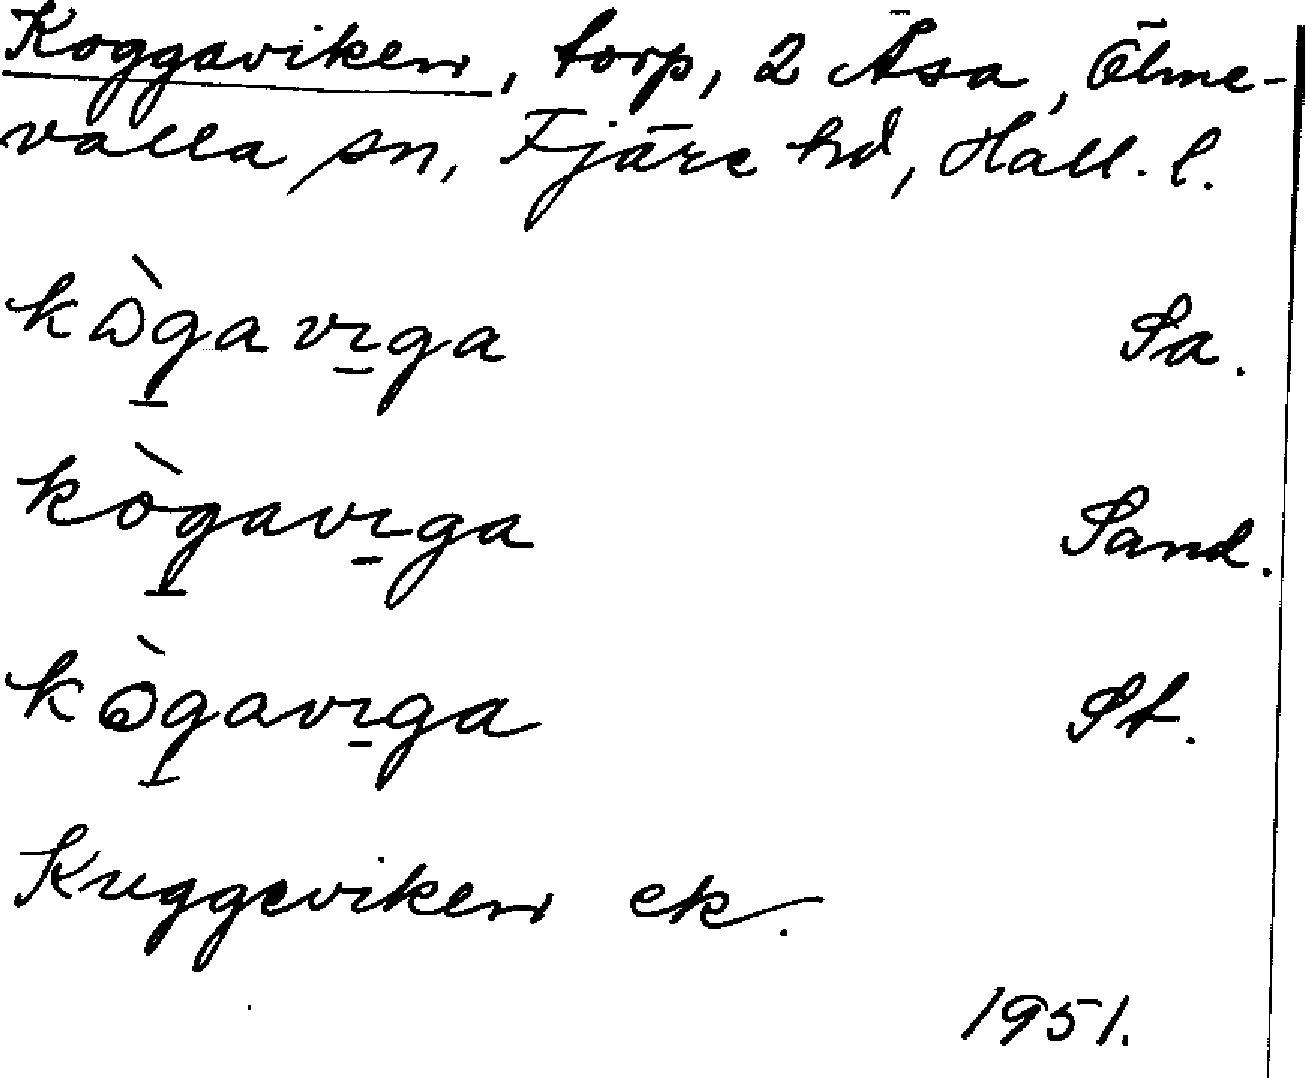 Koggaviken, torp, 2 Åsa, Ölme-
valla sn, Fjäre hd, Hall. l.
kògavɪga Sa.
kògavɪga Sand.
kògavɪga St.
Kuggeviken ek.
1951.